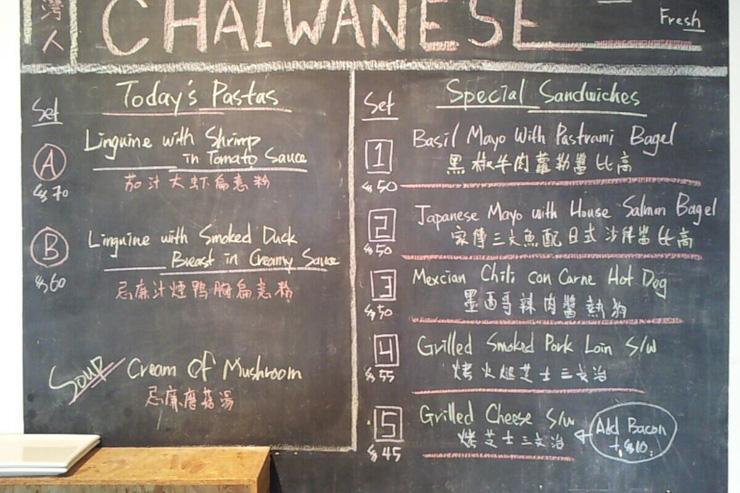 灣人
CHAIWANESE
Fresh
Today's Pastas
Set
A
Linguine with Shrimp
in Tomato Sauce
$70
茄汁大蝦扁意粉
B
Linguine with Smoked Duck
Breast in Creamy Sauce
$60
忌廉汁煙鴨胸扁意粉
Soup
Cream Of Mushroom
忌廉磨菇湯
Special Sandwiches
Set
1
Basil Mayo With Pastrami Bagel
黑椒牛肉蘿勒醬比高
$50
2
Japanese Mayo with House Salmon Bagel
家傳三文魚配日式沙律醬比高
$50
3
Mexcian Chili con Carne Hot Dog
墨西哥辣肉醬熱狗
$50
4
Grilled Smoked Pork Loin S/w
烤火腿芝士三文治
$55
5
Grilled Cheese S/w
烤芝士三文治
$45
Add Bacon
+ $10.